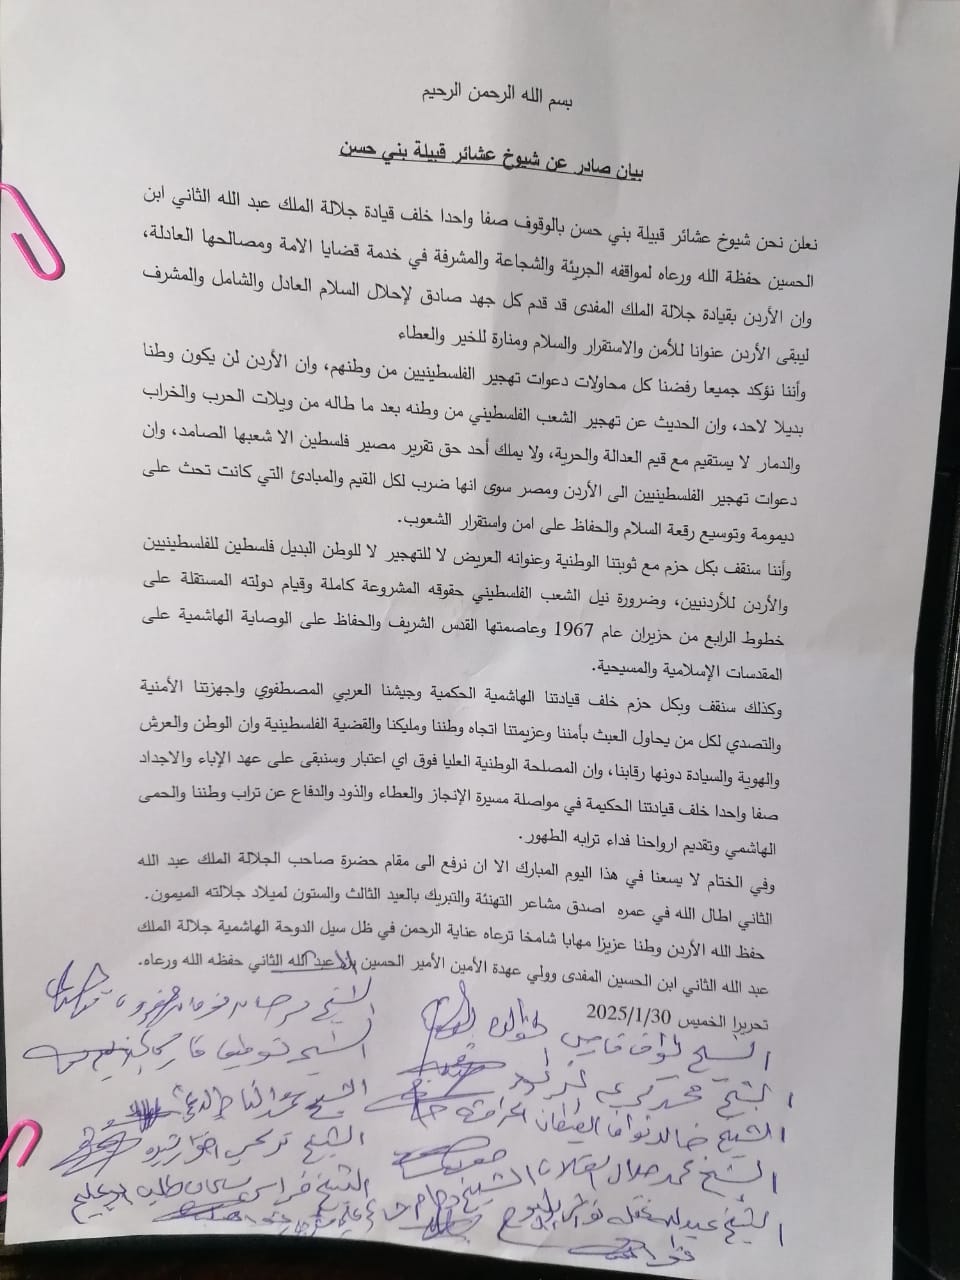 بسم الله الرحمن الرحيم
بيان صادر عن شيوخ عشائر قبيلة بني حسن
نعلن نحن شيوخ عشائر قبيلة بني حسن بالوقوف صفا واحدا خلف قيادة جلالة الملك عبد الله الثاني ابن
الحسين حفظة الله ورعاه لمواقفه الجريئة والشجاعة والمشرفة في خدمة قضايا الامة ومصالحها العادلة،
وان الأردن بقيادة جلالة الملك المفدى قد قدم كل جهد صادق لإحلال السلام العادل والشامل والمشرف
ليبقى الأردن عنوانا للأمن والاستقرار والسلام ومنارة للخير والعطاء
وأننا نؤكد جميعا رفضنا كل محاولات دعوات تهجير الفلسطينيين من وطنهم، وان الأردن لن يكون وطنا
بديلا لاحد، وان الحديث عن تهجير الشعب الفلسطيني من وطنه بعد ما طاله من ويلات الحرب والخراب
والدمار لا يستقيم مع قيم العدالة والحرية، ولا يملك أحد حق تقرير مصير فلسطين الا شعبها الصامد، وان
دعوات تهجير الفلسطينيين الى الأردن ومصر سوى انها ضرب لكل القيم والمبادئ التي كانت تحث على
ديمومة وتوسيع رقعة السلام والحفاظ على امن واستقرار الشعوب.
وأننا سنقف بكل حزم مع ثوبتنا الوطنية وعنوانه العريض لا للتهجير لا للوطن البديل فلسطين للفلسطينيين
والأردن للأردنيين، وضرورة نيل الشعب الفلسطيني حقوقه المشروعة كاملة وقيام دولته المستقلة على
خطوط الرابع من حزيران عام 1967 وعاصمتها القدس الشريف والحفاظ على الوصاية الهاشمية على
المقدسات الإسلامية والمسيحية.
وكذلك سنقف وبكل حزم خلف قيادتنا الهاشمية الحكمية وجيشنا العربي المصطفوي واجهزتنا الأمنية
والتصدي لكل من يحاول العبث بأمننا وعزيمتنا اتجاه وطننا ومليكنا والقضية الفلسطينية وان الوطن والعرش
والهوية والسيادة دونها رقابنا، وان المصلحة الوطنية العليا فوق اي اعتبار وسنبقى على عهد الإباء والاجداد
صفا واحدا خلف قيادتنا الحكيمة في مواصلة مسيرة الإنجاز والعطاء والذود والدفاع عن تراب وطننا والحمى
الهاشمي وتقديم ارواحنا فداء ترابه الطهور.
وفي الختام لا يسعنا في هذا اليوم المبارك الا ان نرفع الى مقام حضرة صاحب الجلالة الملك عبد الله
الثاني اطال الله في عمره اصدق مشاعر التهنئة والتبريك بالعيد الثالث والستون لميلاد جلالته الميمون.
حفظ الله الأردن وطنا عزيزا مهابا شامخا ترعاه عناية الرحمن في ظل سيل الدوحة الهاشمية جلالة الملك
عبد الله الثاني ابن الحسين المفدى وولي عهدة الأمين الأمير الحسين عبد الله الثاني حفظه الله ورعاه.
تحريرا الخميس 2025/1/30
الشيخ
الشيخ
الشيخ
الشيخ
الشيخ خالد نواف
الشيخ
الشيخ محمد
الشيخ
الشيخ
الشيخ
الشيخ فراس